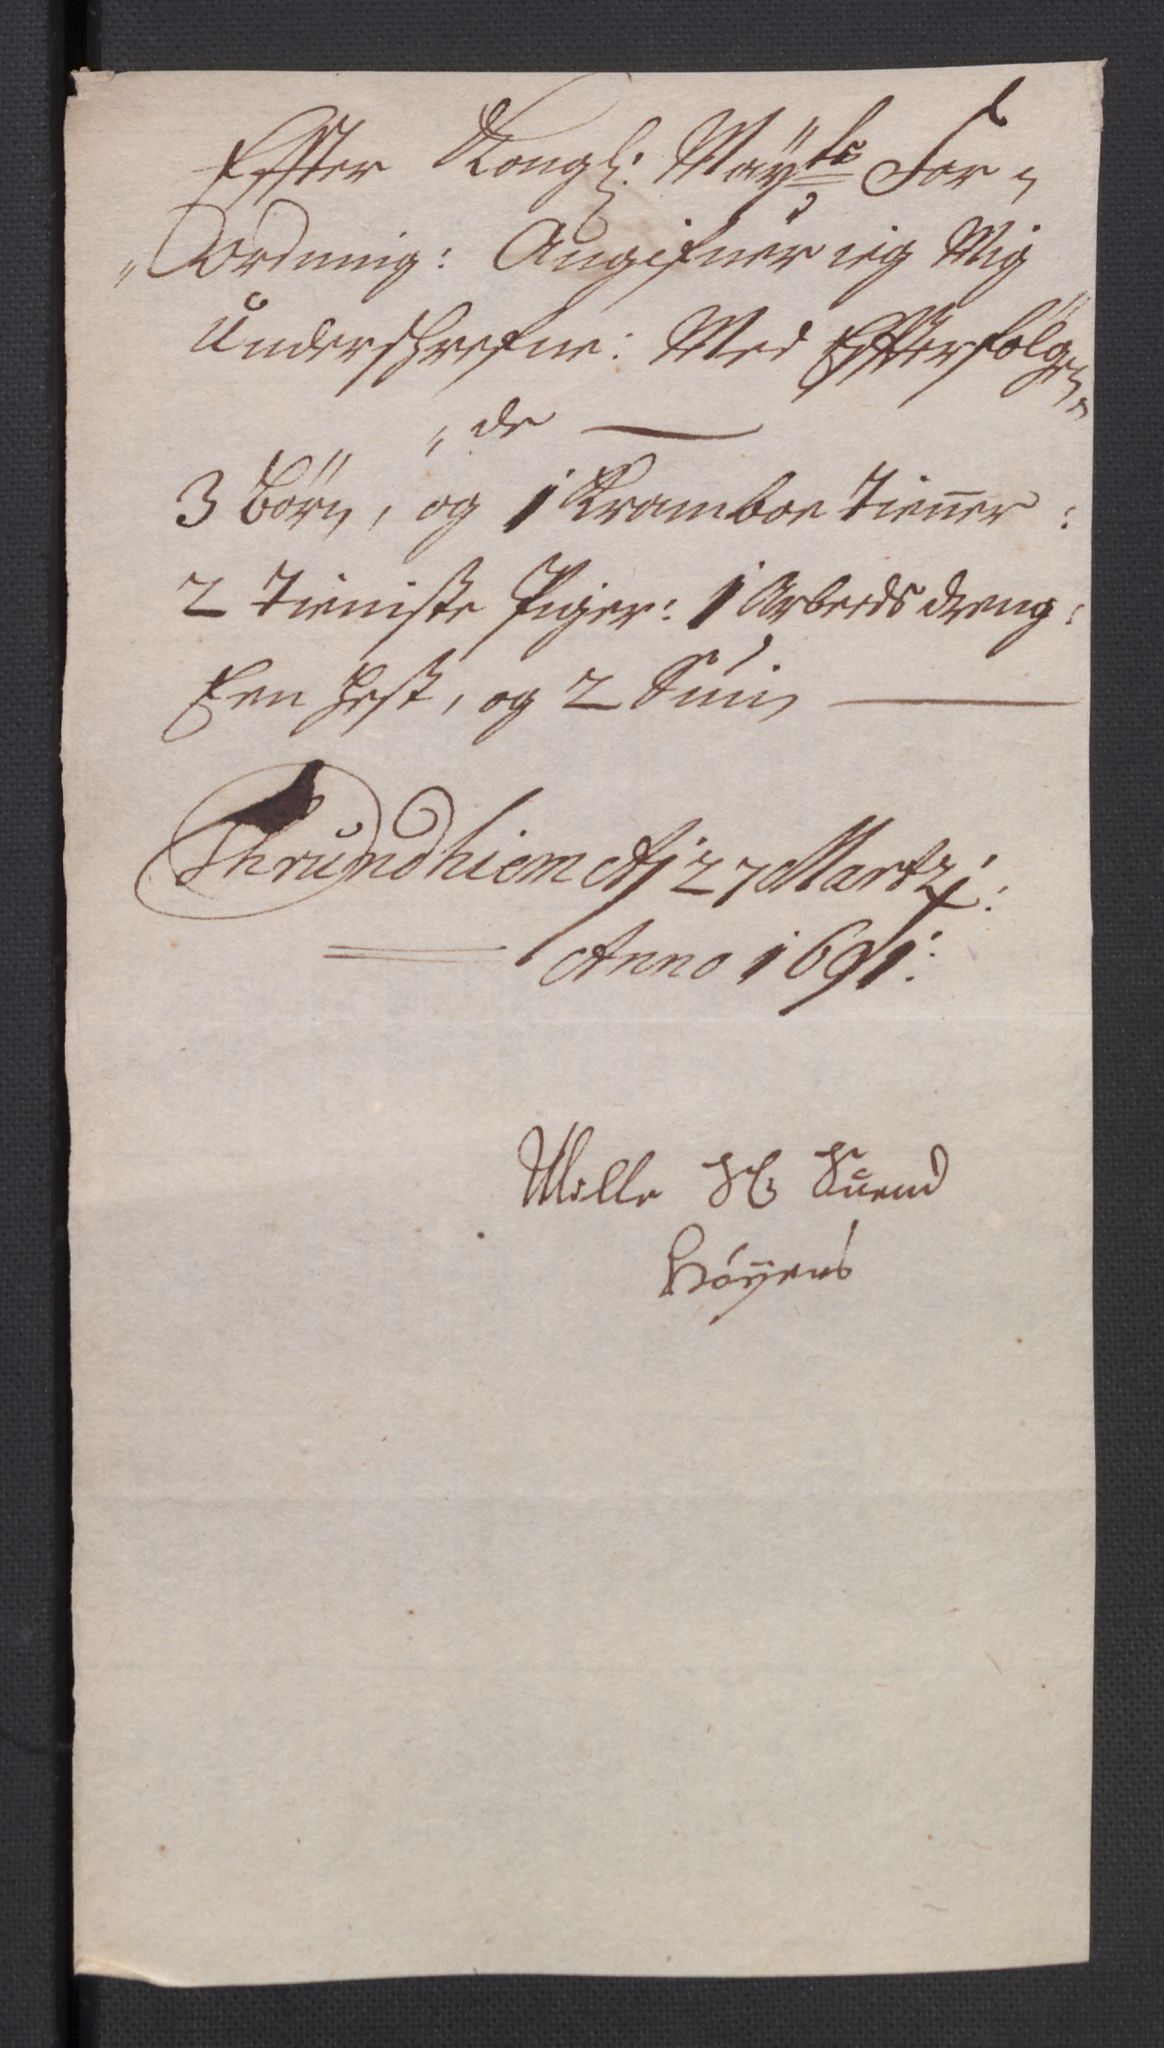 Effter Kongl: Maÿts For=
=Ordning: Angifuer ieg Mig
Underschrefne: Med Effterfølgen=
=de
3 Børn, og 1 Kramboe Tienner:
2 Tieniste Piger: 1 Arbeids dreng:
Een Hest, og 2 Suin
Thrundhiem dj 27 Martzj:
Anno 1691:
Mille Sl: Suend
Høÿers